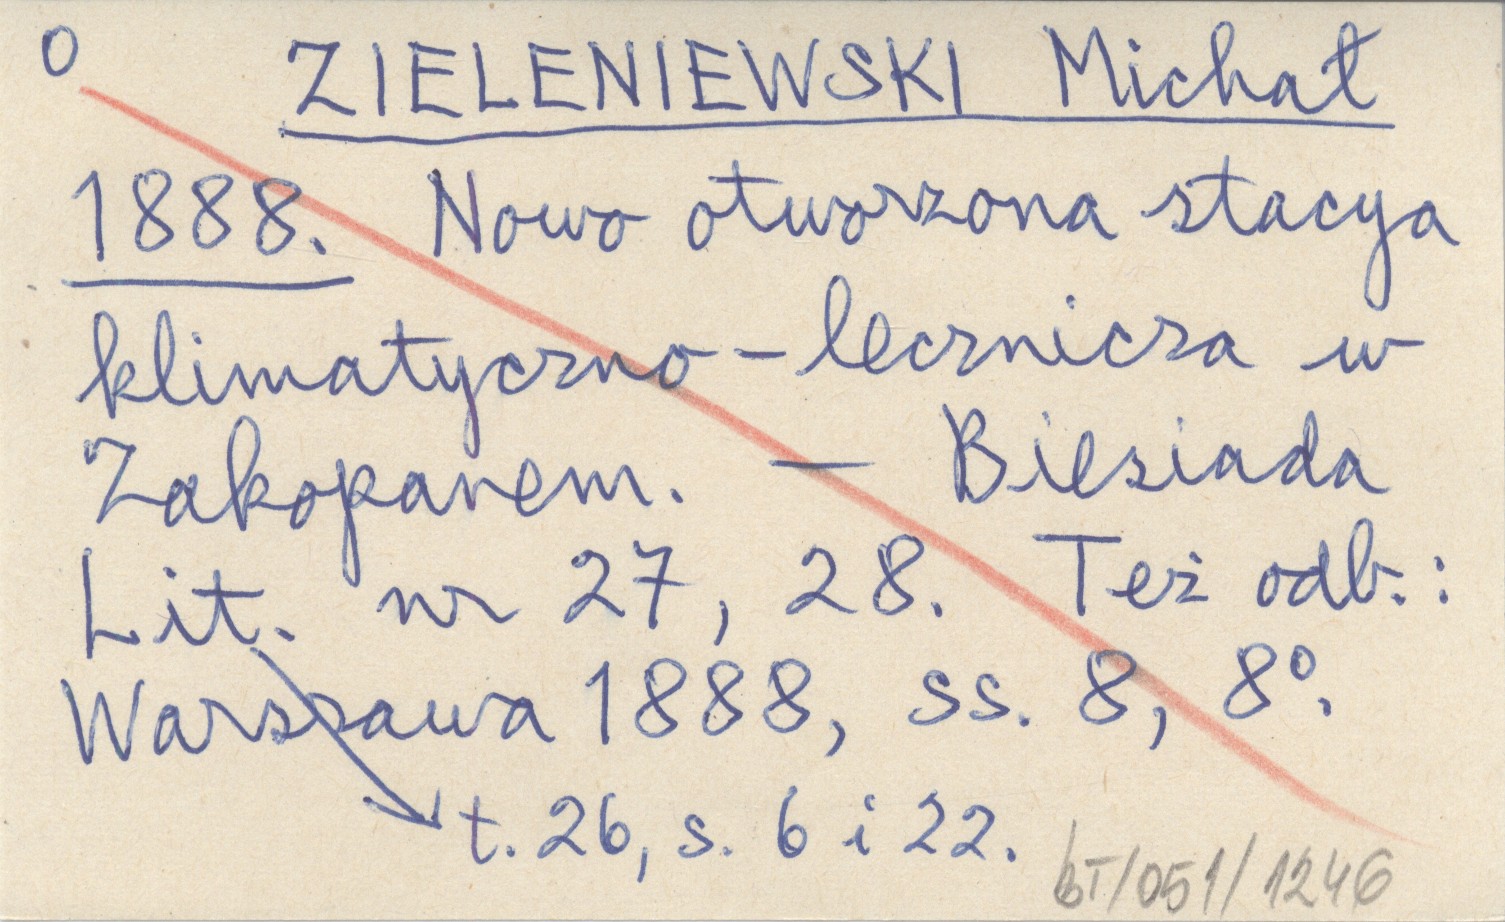 0 ZIELENIEWSKI Michał
1888. Nowo otworzona stacya
klimatyczno-lecznicza w
Zakopanem. — Biesiada
Lit. nr 27, 28. Też odb.:
Warszawa 1888, ss. 8, 8°.
t. 26, s. 6 i 22.
bT/051/1246